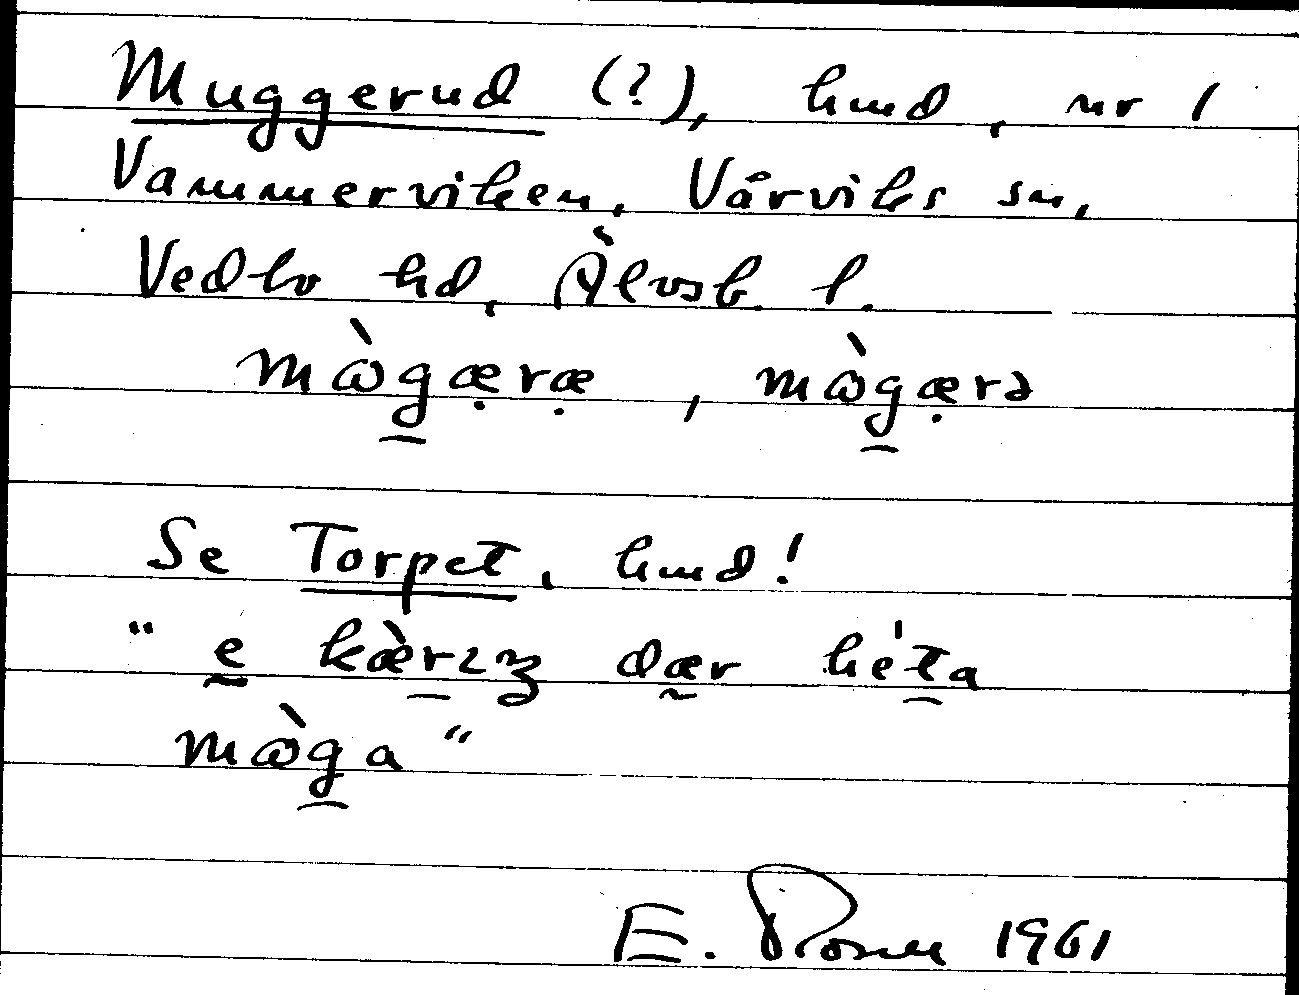 Muggerud (?), hmd, nr 1
Vammerviken, Vårviks sn,
Vedbo hd, Älvsb. l.
mὼgæ̣ræ̣, mὼgæ̣rə
Se Torpet, hmd!
"e kæ̀rıȝ dær héta
mὼga"
E. Rosen 1961